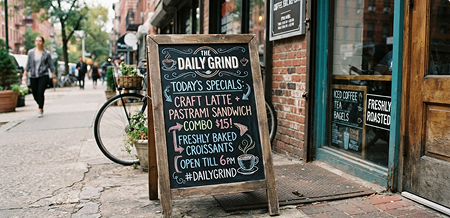 THE
DAILY GRIND
TODAY'S SPECIALS:
CRAFT LATTE +
PASTRAMI SANDWICH
COMBO $15!
FRESHLY BAKED
CROISSANTS
OPEN TILL 6PM
#DAILYGRIND
ICED COFFEE
TEA
BAGELS
FRESHLY
ROASTED